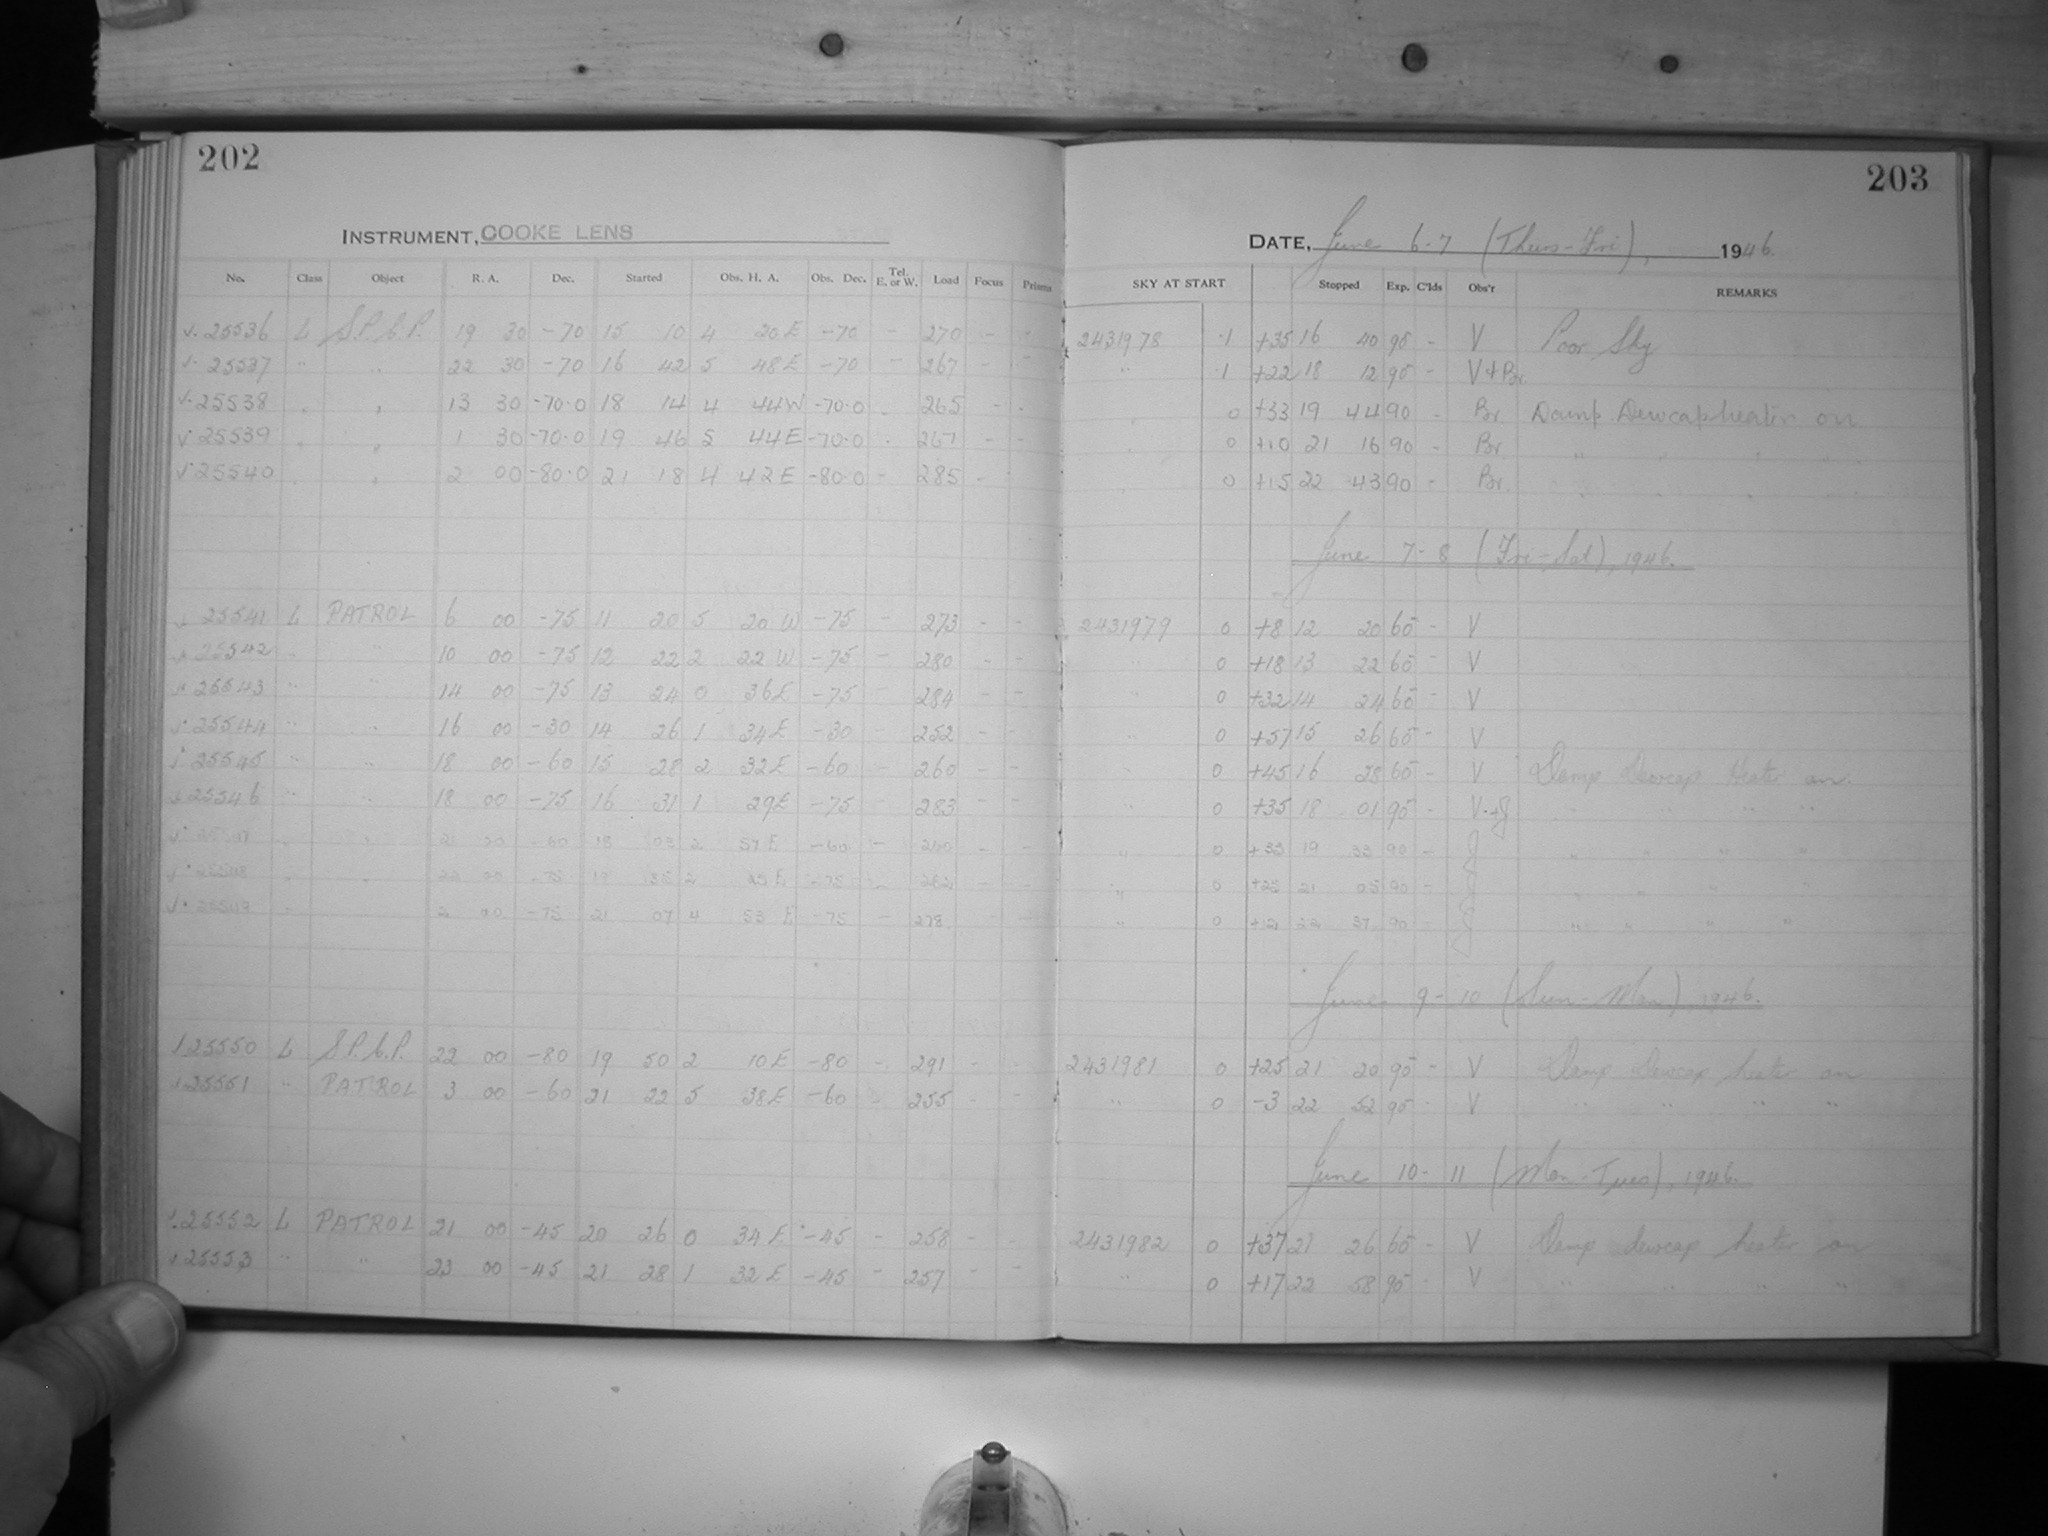 202
INSTRUMENT, COOKE LENS
No. Class Object R. A. Dec. Started Obs. H. A. Obs. Dec. Tel. E. or W. Load Focus Prisms
25536 L S.P.C.P. 19 30 -70 15 10 4 20E -70 - 270 - -
25537 " " 22 30 -70 16 42 5 48E -70 - 267 - -
25538 " " 13 30 -70.0 18 14 4 44W -70.0 - 265 - -
25539 " " 1 30 -70.0 19 46 5 44E -70.0 - 267 - -
25540 " " 2 00 -80.0 21 18 4 42E -80.0 - 285 -
25541 L PATROL 6 00 -75 11 20 5 20 W -75 - 273 - -
25542 " " 10 00 -75 12 22 2 22 W -75 - 280 - -
25543 " " 14 00 -75 13 24 0 36E -75 - 284 - -
25544 " " 16 00 -30 14 26 1 34E -30 - 252 - -
25545 " " 18 00 -60 15 28 2 32E -60 - 260 - -
25546 " " 18 00 -75 16 31 1 29E -75 - 283 - -
25547 " " 21 00 -60 18 03 2 57E -60 - 260 - -
25548 " " 22 00 -75 19 35 2 25E -75 - - -
25549 " " 2 00 -75 21 07 4 53 E -75 - 278 - -
25550 L S.P.C.P. 22 00 -80 19 50 2 10E -80 - 291 - -
25551 " PATROL 3 00 -60 21 22 5 38E -60 - 255 - -
25552 L PATROL 21 00 -45 20 26 0 34E -45 - 258 - -
25553 " " 23 00 -45 21 28 1 32E -45 - 257 - -
203
DATE, June 6-7 (Thurs-Fri), 1946.
SKY AT START Stopped Exp. C'lds Obs'r REMARKS
2431978 -1 +35 16 40 90 - V Poor Sky
" -1 +22 18 12 90 - V+Br.
" 0 +33 19 44 90 - Br. Damp. Dewcap heater on
" 0 +10 21 16 90 - Br. " " " "
" 0 +15 22 43 90 - Br. " " " "
June 7-8 (Fri-Sat), 1946.
2431979 0 +8 12 20 60 - V
" 0 +18 13 22 60 - V
" 0 +32 14 24 60 - V
" 0 +57 15 26 60 - V
" 0 +45 16 28 60 - V Damp Dewcap Heater on.
" 0 +35 18 01 90 - V+J " " " "
" 0 +33 19 33 90 - J " " " "
" 0 +25 21 05 90 - J " " " "
" 0 22 37 90 - J " " " "
June 9-10 (Sun-Mon), 1946.
2431981 0 +25 21 20 90 - V Damp Dewcap heater on
" 0 -3 22 52 90 - V " " " "
June 10-11 (Mon-Tues), 1946.
2431982 0 +37 21 26 60 - V Damp dewcap heater on
" 0 +17 22 58 90 - V " " " "